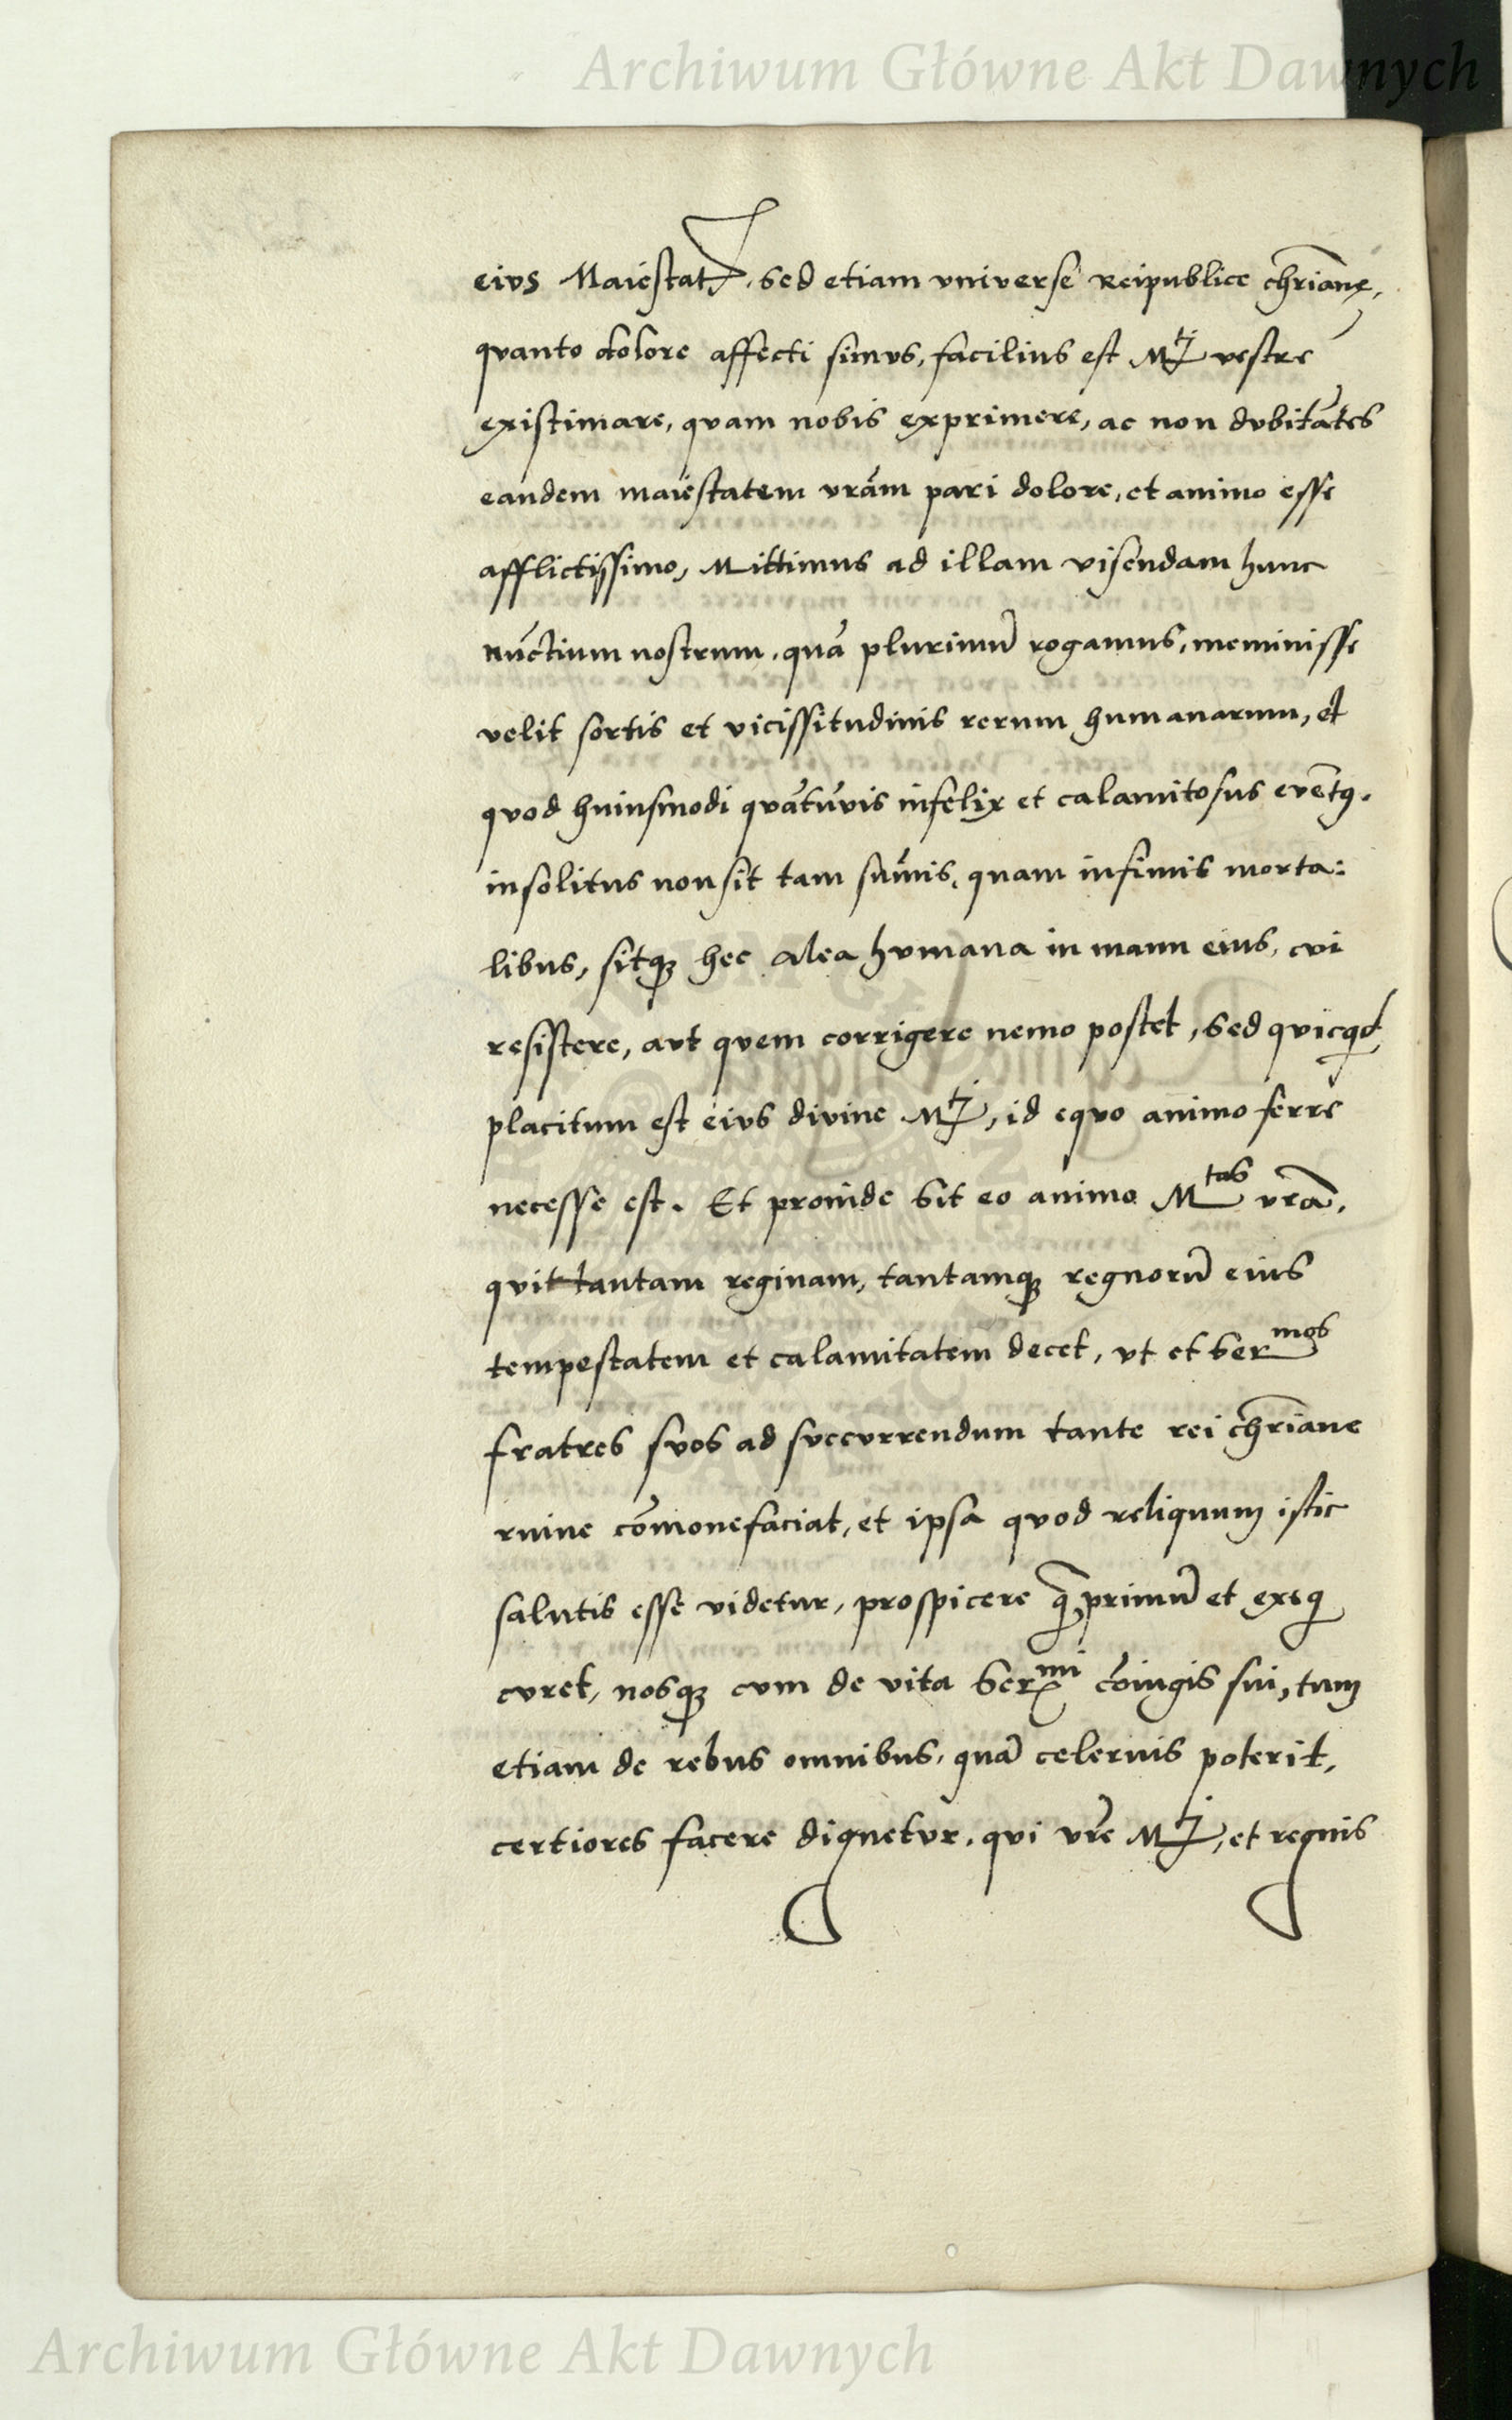 Archiwum Główne Akt Dawnych
eius Maiestat(is), sed etiam vniverse Reipublice chr̄iane,
qvanto dolore affecti simvs, facilius est M^ti vestre
existimare, qvam nobis exprimere, ac non dvbitātes
eandem maiestatem vrām pari dolore, et animo esse
afflictissimo, Mittimus ad illam visendam hunc
nūctium nostrum, quā plurimū rogamus, meminisse
velit sortis et vicissitudinis rerum humanarum, et
qvod huiusmodi qvātūvis infelix et calamitosus evētꝰ.
insolitus non sit tam sūmis, quam infimis morta:
libus, sitqꝫ hec alea hvmana in manu eius, cvi
resistere, avt qvem corrigere nemo postet, Sed qvicqd
placitum est eivs divine M^ti, id eqvo animo ferre
necesse est. Et proinde sit eo animo M^tas vrā,
qvi tantam reginam, tantamqꝫ regnorū eius
tempestatem et calamitatem decet, vt et Ser^mos
fratres svos ad svccvrrendum tante rei chr̄iane
ruine cōmonefaciat, et ipsa qvod reliquum istic
salutis esse videtur, prospicere q̄primū et exeqi
cvret, nosqꝫ cvm de vita Ser^mi cōiugis sui, tum
etiam de rebus omnibus, quā celerius poterit,
certiores facere dignetvr, qvi vrē M^ti, et regnis
Archiwum Główne Akt Dawnych